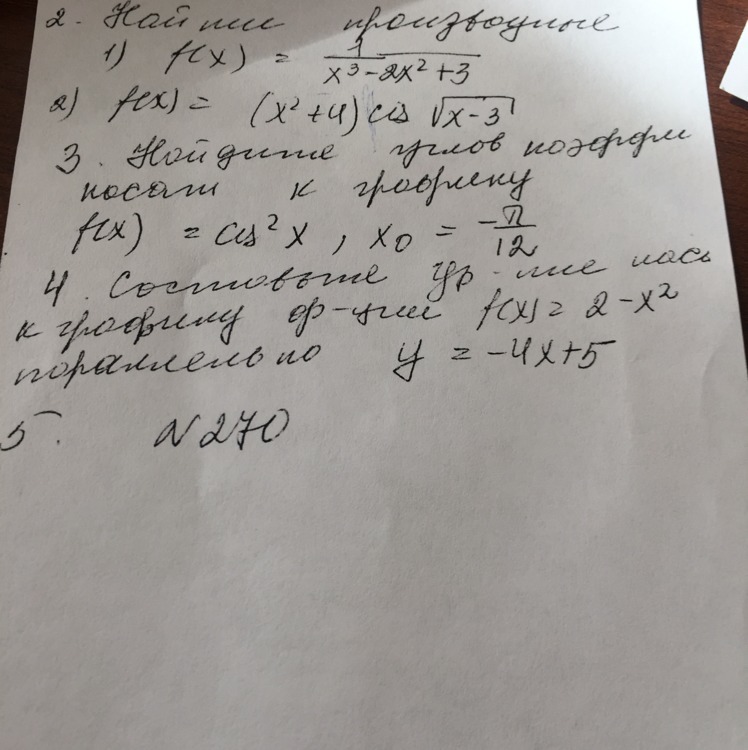 2. Найти производные
1) f(x) = 1/(x³-2x²+3)
2) f(x) = (x²+4) cos √(x-3)
3. Найдите углов коэффи
касат к графику
f(x) = cos²x, x₀ = -π/12
4. Составьте ур-ние кас
к графику ф-ции f(x) = 2-x²
параллельно y = -4x+5
5. N270